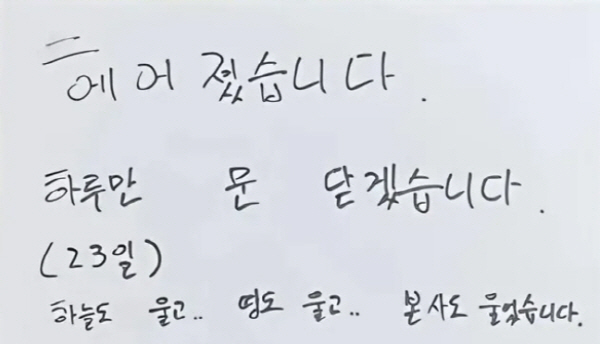 헤어졌습니다.
하루만 문 닫겠습니다.
(23일)
하늘도 울고.. 땅도 울고.. 본사도 울었습니다.